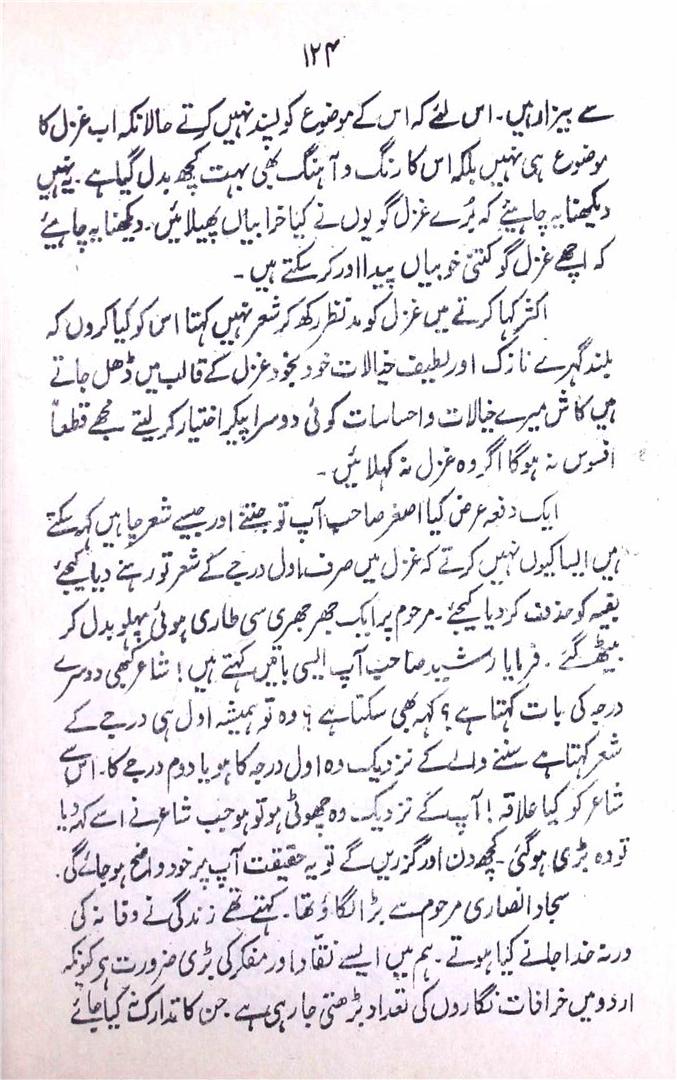 ۱۲۴
سے بیزار ہیں۔ اس لئے کہ اس کے موضوع کو پسند نہیں کرتے حالانکہ اب غزل کا
موضوع ہی نہیں بلکہ اس کا رنگ و آہنگ بھی بہت کچھ بدل گیا ہے۔ یہ نہیں
دیکھنا یہ چاہیئے کہ بُرے غزل گویوں نے کیا خرابیاں پھیلائیں۔ دیکھنا یہ چاہیئے
کہ اچھے غزل گو کتنی خوبیاں پیدا اور کر سکتے ہیں۔
اکثر کہا کرتے میں غزل کو مد نظر رکھ کر شعر نہیں کہتا اس کو کیا کروں کہ
بلند گہرے نازک اور لطیف خیالات خود بخود غزل کے قالب میں ڈھل جاتے
ہیں کاش میرے خیالات و احساسات کوئی دوسرا پیکر اختیار کر لیتے مجھے قطعاً
افسوس نہ ہوگا اگر وہ غزل نہ کہلائیں۔
ایک دفعہ عرض کیا اصغر صاحب آپ تو جتنے اور جیسے شعر چاہیں کہہ سکتے
ہیں ایسا کیوں نہیں کرتے کہ غزل میں صرف اول درجے کے شعر تو رہنے دیا کیجئے
بقیہ کو حذف کر دیا کیجئے۔ مرحوم پر ایک جھرجھری سی طاری ہوئی پہلو بدل کر
بیٹھ گئے۔ فرمایا رشید صاحب آپ ایسی باتیں کہتے ہیں! شاعر کبھی دوسرے
درجہ کی بات کہتا ہے؟ کہہ بھی سکتا ہے؟ وہ تو ہمیشہ اول ہی درجے کے
شعر کہتا ہے سننے والے کے نزدیک وہ اول درجہ کا ہو یا دوم درجے کا۔ اس سے
شاعر کو کیا علاقہ! آپ کے نزدیک وہ چھوٹی ہو تو ہو جب شاعر نے اسے کہہ دیا
تو وہ بڑی ہوگئی۔ کچھ دن اور گزریں گے تو یہ حقیقت آپ پر خود واضح ہو جائے گی۔
سجاد انصاری مرحوم سے بڑا لگاؤ تھا۔ کہتے تھے زندگی نے وفا نہ کی
ورنہ خدا جانے کیا ہوتے۔ ہم میں ایسے نقاد اور مفکر کی بڑی ضرورت ہے کیونکہ
اردو میں خرافات نگاروں کی تعداد بڑھتی جا رہی ہے جن کا تدارک نہ کیا جائے